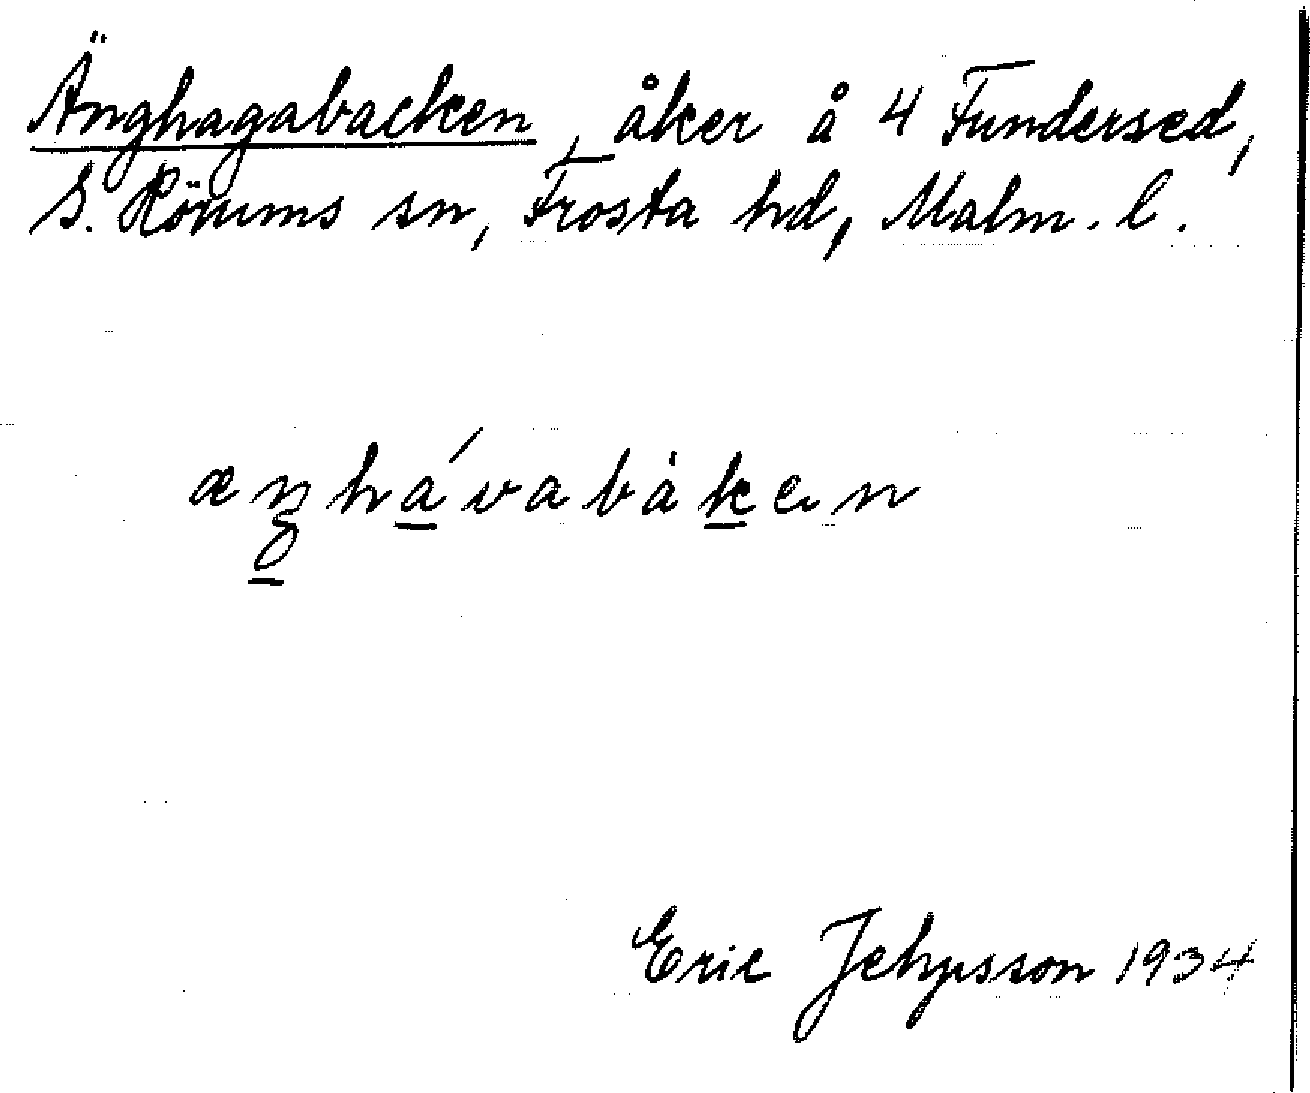 Änghagabacken, åker å 4 Fundersed,
S. Rörums sn, Frosta hd, Malm. l.
æŋhávabàken
Eric Jehpsson 1934